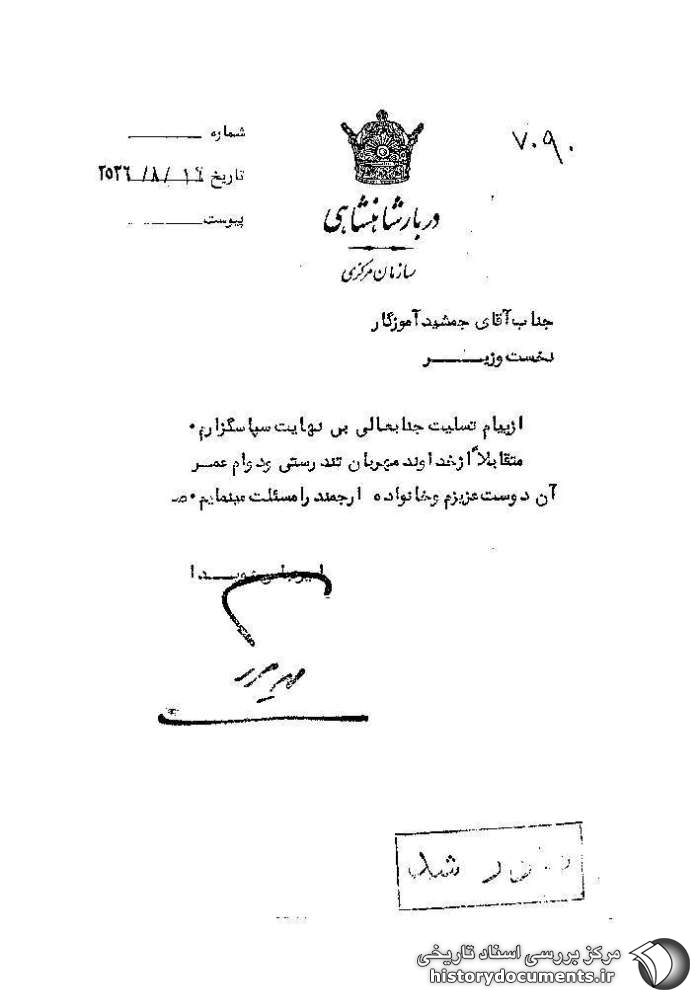 شماره
تاریخ ۲۵۳۶/۸/۱۶
پیوست
۷۰۹۰
دربار شاهنشاهی
سازمان مرکزی
جناب آقای جمشید آموزگار
نخست وزیـــر
از پیام تسلیت جنابعالی بی نهایت سپاسگزارم.
متقابلاً از خداوند مهربان تندرستی و دوام عمر
آن دوست عزیزم و خانواده ارجمند را مسئلت مینمایم. ص
امیرعباس هویــدا
شد
مرکز بررسی اسناد تاریخی
historydocuments.ir